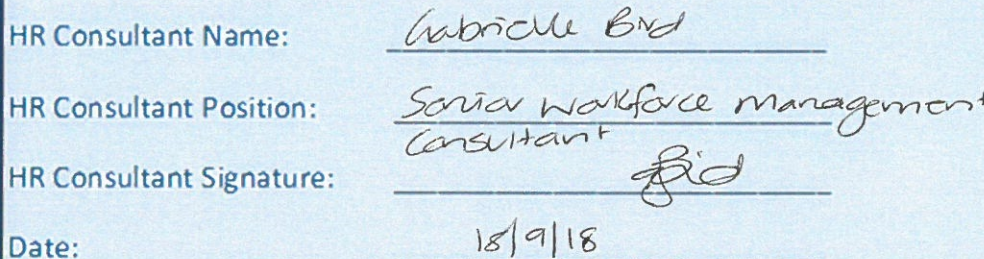 HR Consultant Name: Gabrielle Bird
HR Consultant Position: Senior Workforce Management
Consultant
HR Consultant Signature: GBird
Date: 18/9/18